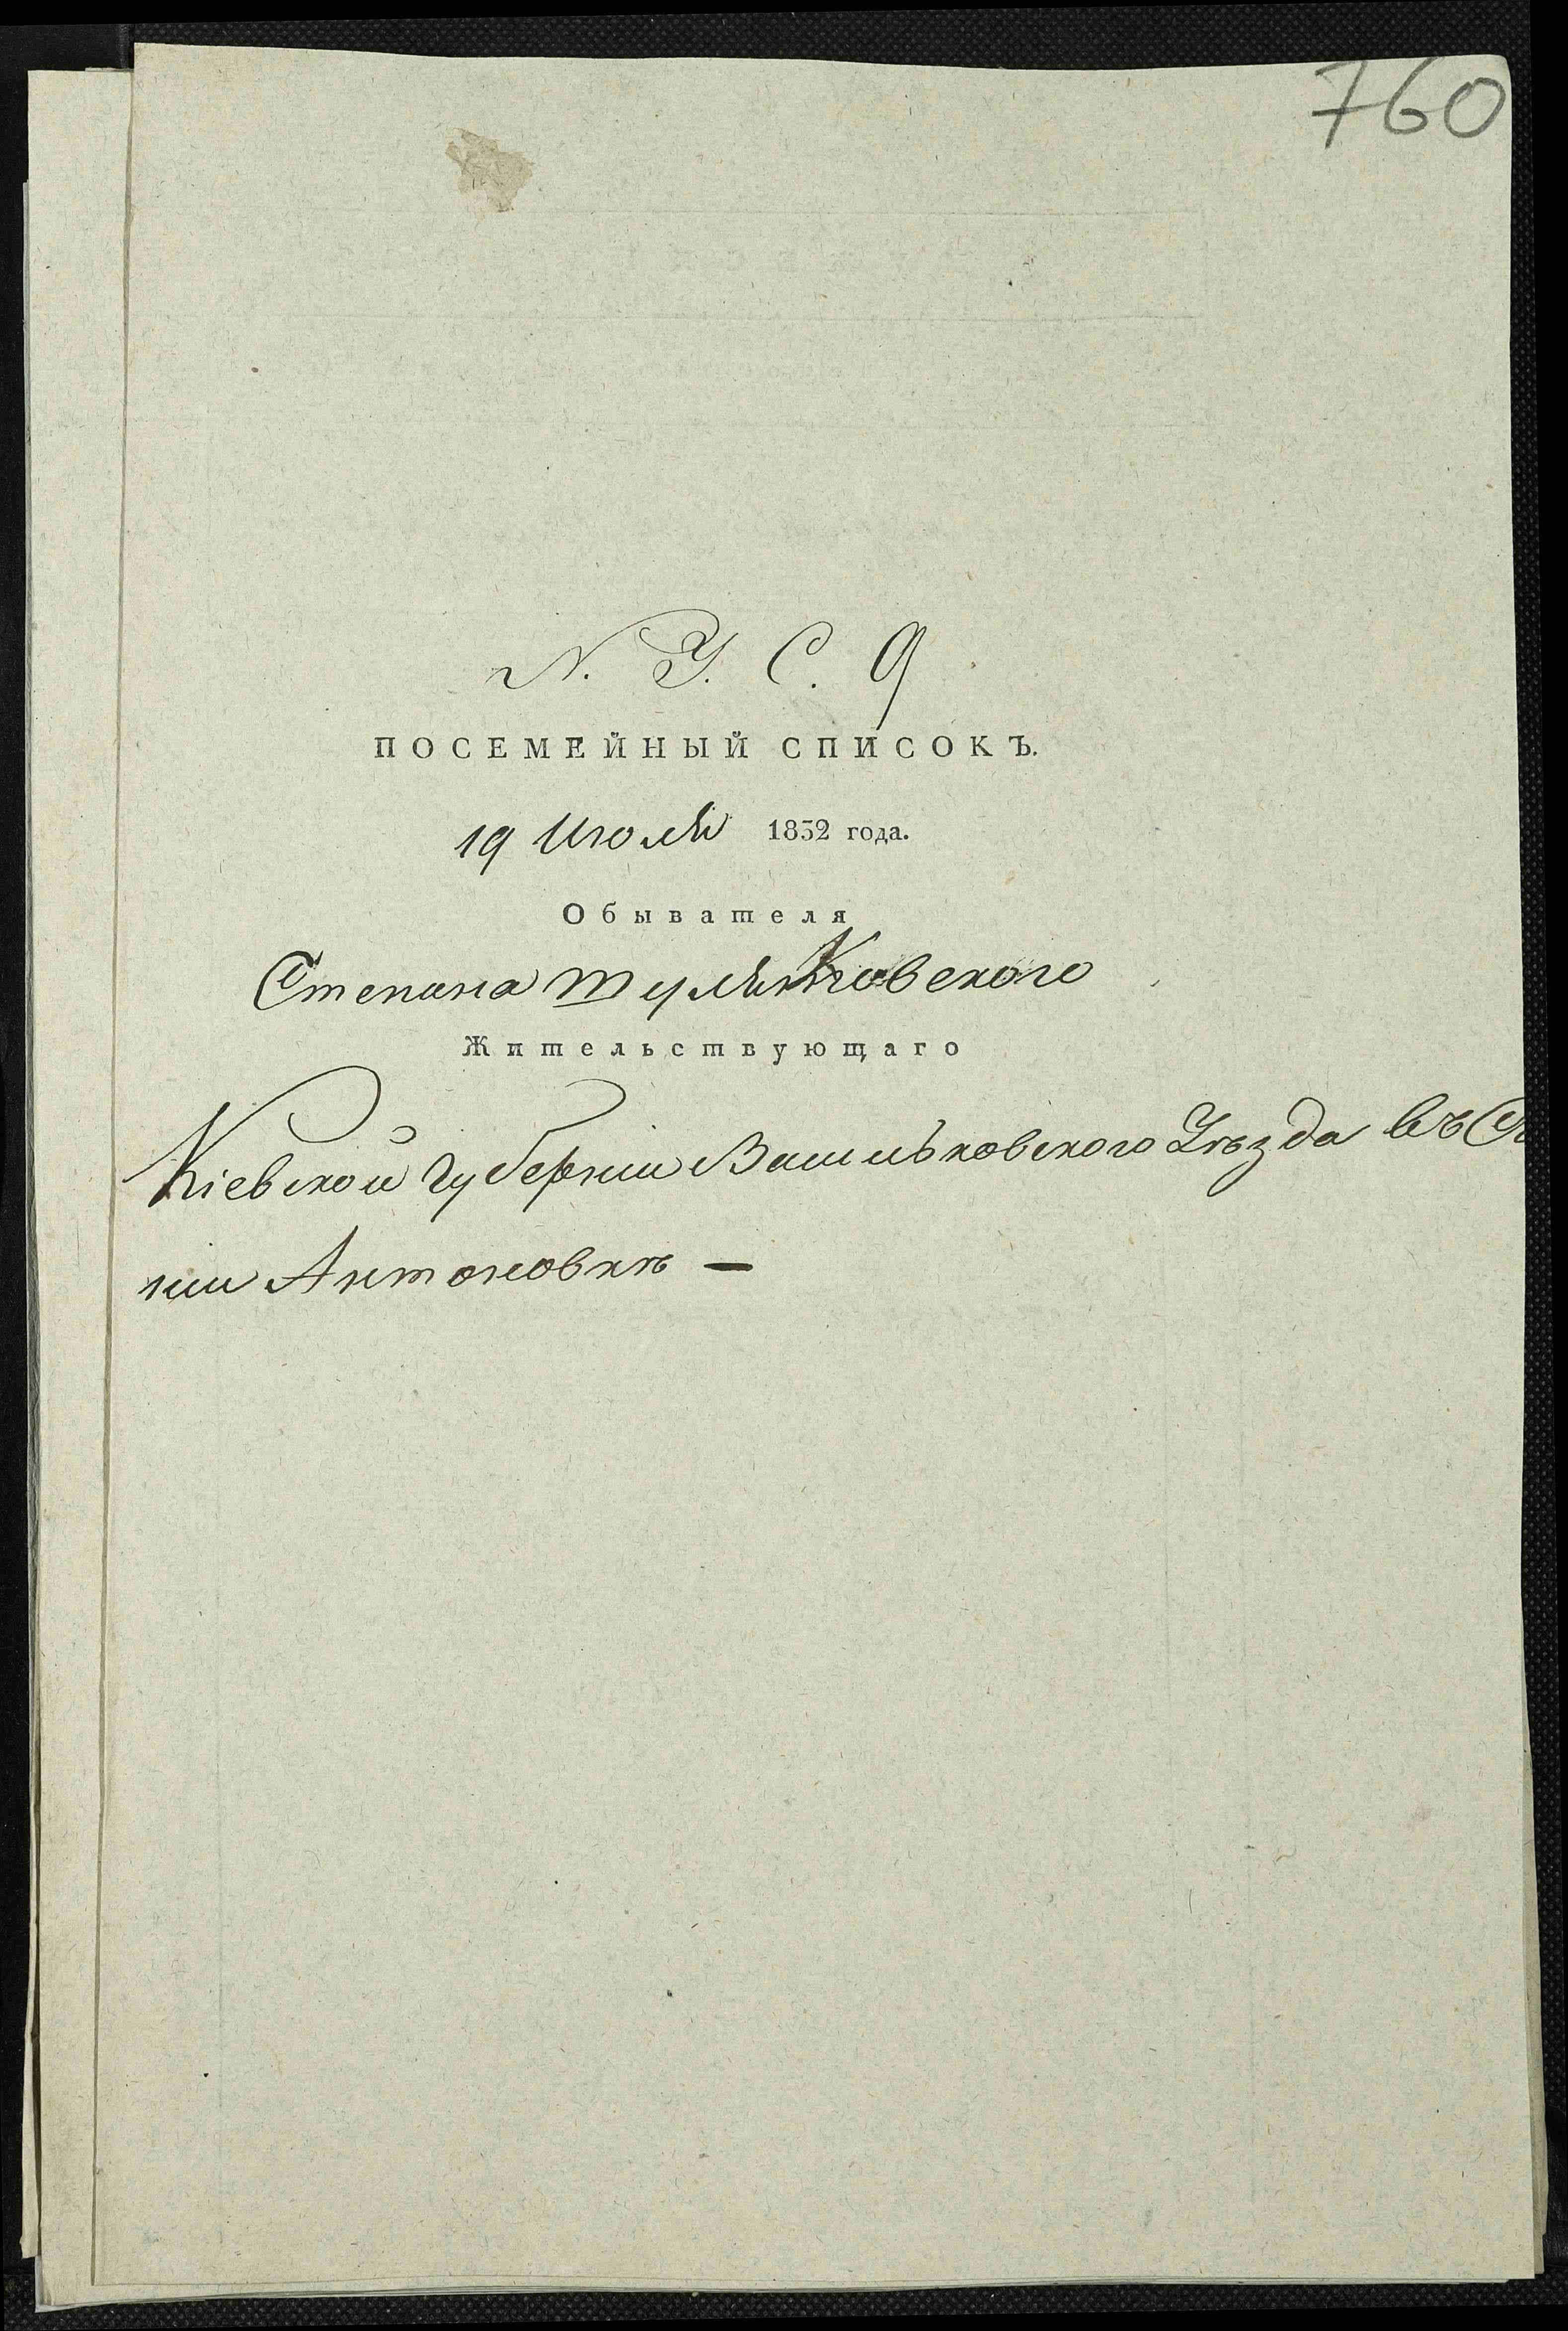 760
N. У. С. 9
ПОСЕМЕЙНЫЙ СПИСОКЪ.
19 Июля 1832 года.
Обывателя
Степана
Жительствующаго
Кіевской Губерніи Васильковского Уѣзда въ
Антоновкѣ —